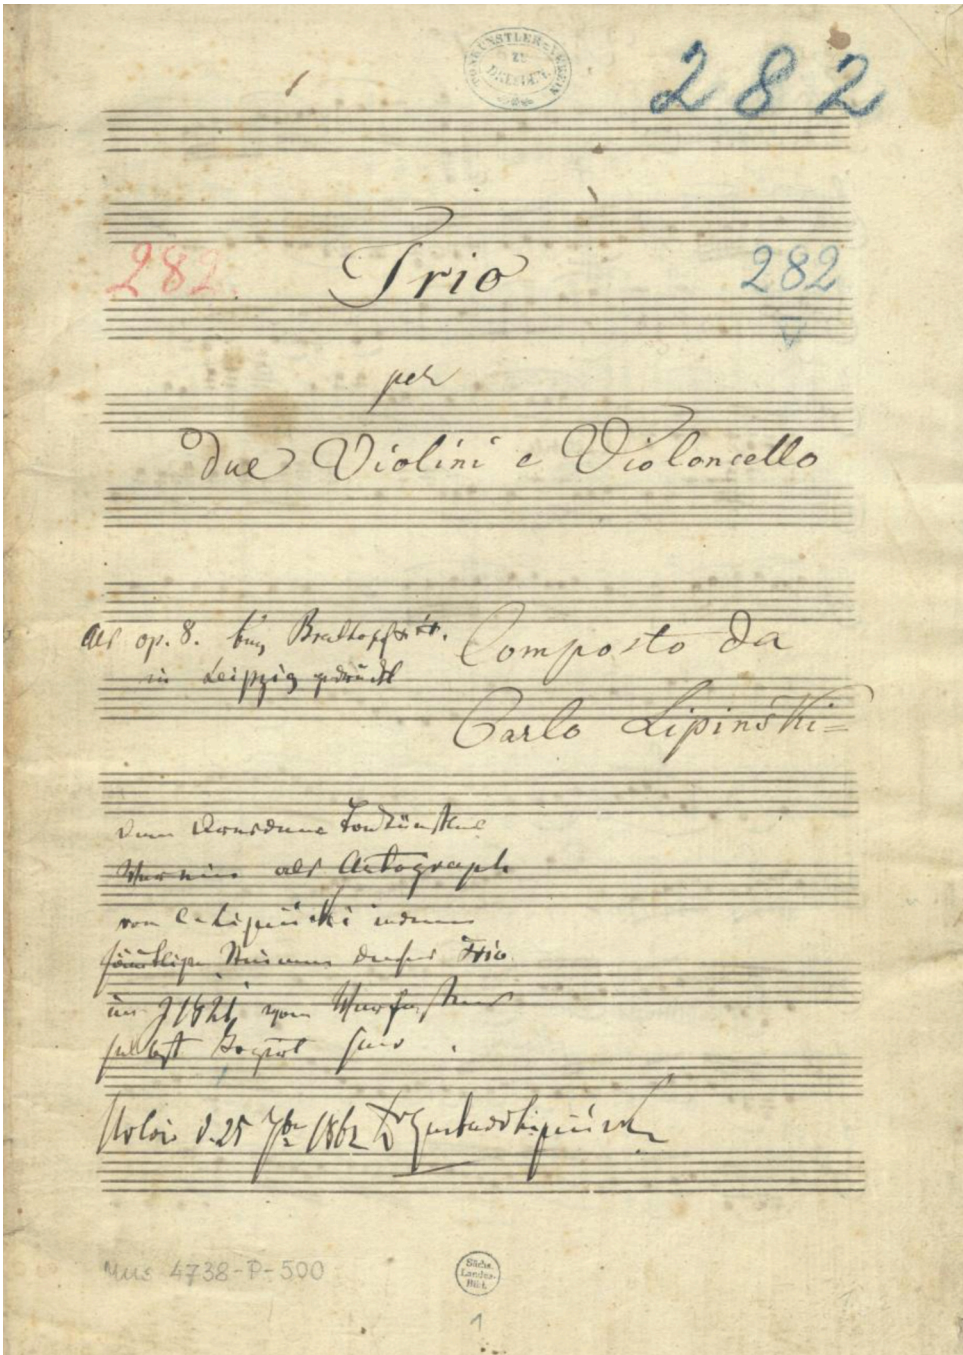 TONKÜNSTLER-VEREIN
ZU
DRESDEN
282
Trio
282
282
per
due Violini e Violoncello
Als op. 8. bei Breitkopf
in Leipzig gedruckt
Composto da
Carlo Lipiński
Dem Dresdner Tonkünstler
Verein als Autograph
von C. Lipiński indem
sämtliche Stimmen dieses Trio
im J 1821 vom Verfasser
selbst kopirt sind.
d. 25 7br 1862
Mus 4738-P-500
Sächs.
Landes-
Bibl.
1